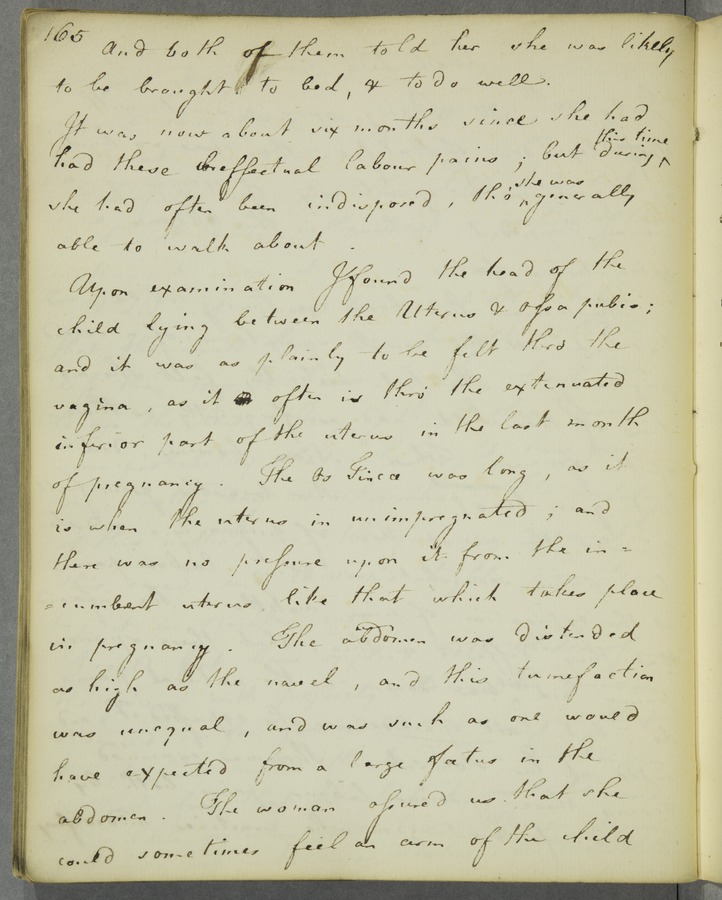 165
And both of them told her she was likely
to be brought to bed, & to do well.
It was now about six months since she had
had these ineffectual labour pains; but during ^this time
she had often been indisposed, tho' ^she was generally
able to walk about.
Upon examination I found the head of the
child lying between the Uterus & ossa pubis;
and it was as plainly to be felt thro' the
vagina, as it often is thro' the extenuated
inferior part of the uterus in the last month
of pregnancy. The Os Tincæ was long, as it
is when the uterus in unimpregnated; and
there was no pressure upon it from the in=
=cumbent uterus like that which takes place
in pregnancy. The abdomen was distended
as high as the navel, and this tumefaction
was unequal, and was such as one would
have expected from a large fœtus in the
abdomen. The woman assured us that she
could sometimes feel an arm of the child